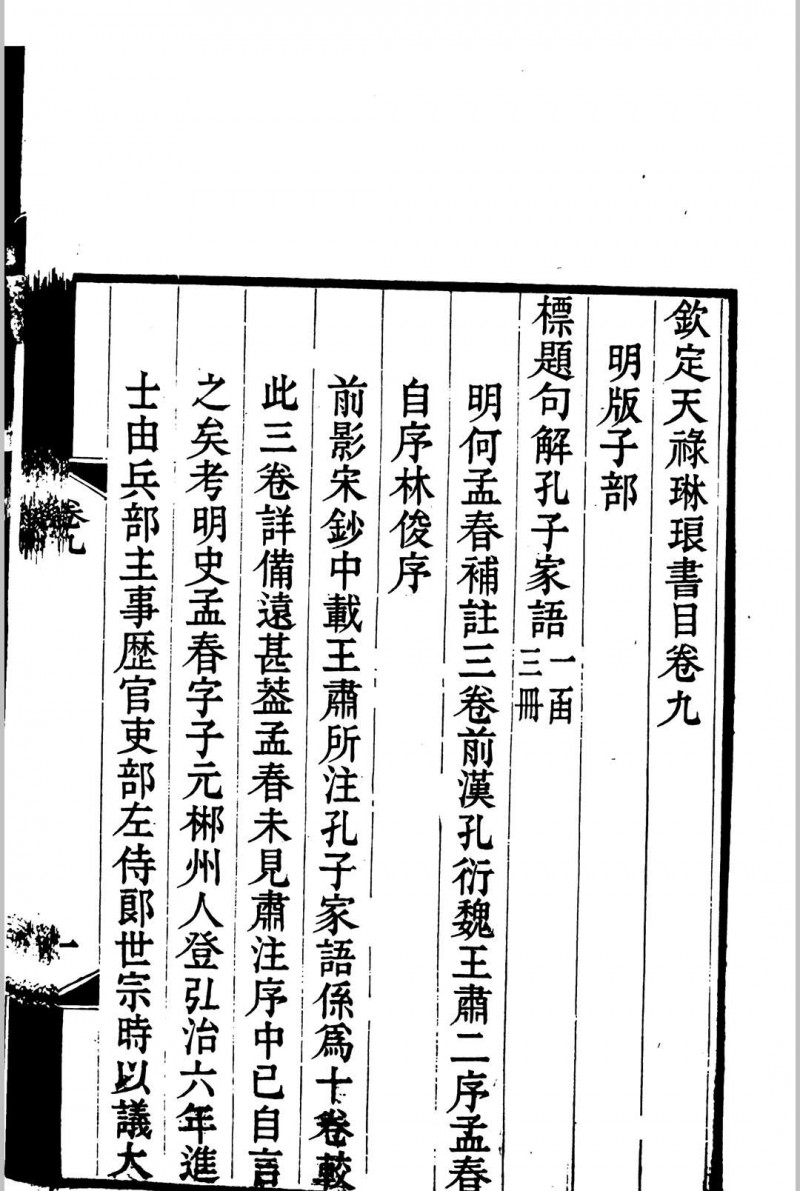 欽定天祿琳琅書目卷九
明版子部
標題句解孔子家語一函三冊
明何孟春補註三卷前漢孔衍魏王肅二序孟春
自序林俊序
前影宋鈔中載王肅所注孔子家語係爲十卷較
此三卷詳備遠甚葢孟春未見肅注序中已自言
之矣考明史孟春字子元郴州人登弘治六年進
士由兵部主事歷官吏部左侍郎世宗時以議大
卷九
一